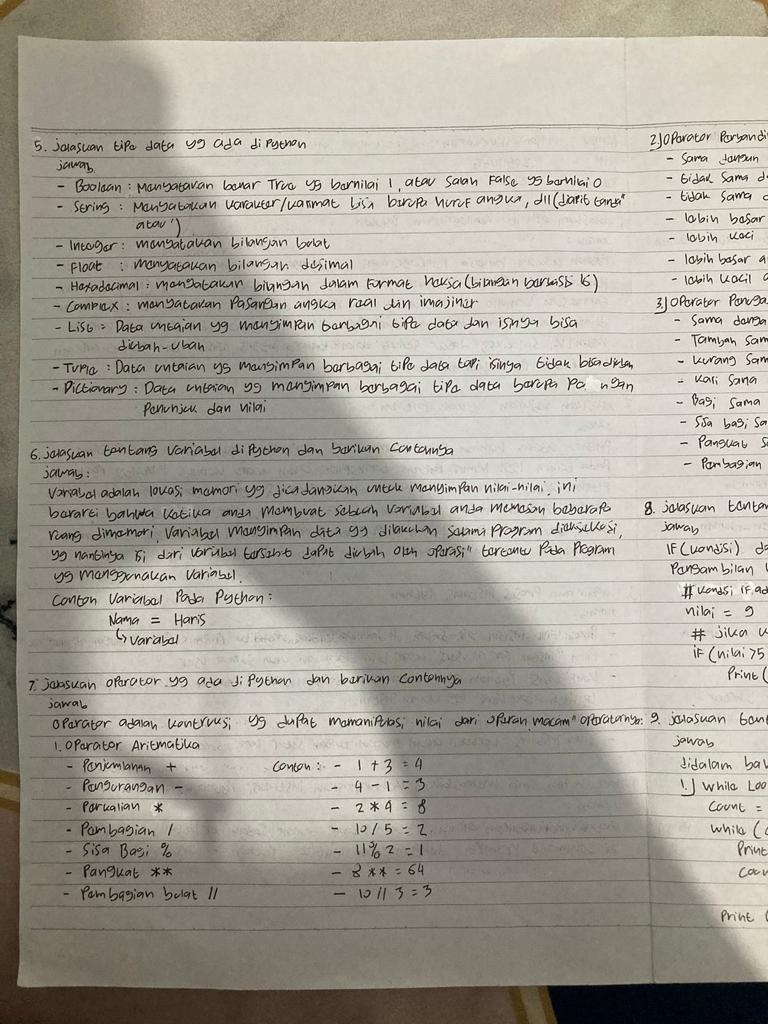 5. jelaskan tipe data yg ada di Python
jawab
- Boolean : Menyatakan benar True yg bernilai 1, atau salah False yg bernilai 0
- String : Menyatakan karakter/kalimat bisa berupa huruf angka, dll (diapit tanda"
atau ')
- Integer : menyatakan bilangan bulat
- Float : menyatakan bilangan desimal
- Hexadecimal : menyatakan bilangan dalam format heksa (bilangan berbasis 16)
- Complex : menyatakan Pasangan angka real dan imajiner
- List : Data untaian yg menyimpan berbagai tipe data dan isinya bisa
diubah-ubah
- Tuple : Data untaian yg menyimpan berbagai tipe data tapi isinya tidak bisa diubah
- Dictionary : Data untaian yg menyimpan berbagai tipe data berupa Pa ngan
Penunjuk dan nilai
6. jelaskan tentang Variabel di Python dan berikan Contohnya
jawab :
Variabel adalah lokasi memori yg dicadangkan untuk menyimpan nilai-nilai. ini
berarti bahwa ketika anda membuat sebuah variabel anda memesan beberapa
ruang dimemori, Variabel menyimpan data yg dilakukan selama Program dieksekusi,
yg nantinya isi dari variabel tersebut dapat diubah oleh operasi" tertentu Pada Program
yg menggunakan Variabel.
Contoh Variabel Pada Python :
Nama = Haris
↳ Variabel
7. Jelaskan operator yg ada di Python dan berikan Contohnya
jawab
Operator adalah kontruksi yg dapat memanipulasi nilai dari operan, macam" operatornya:
1. Operator Aritmatika
- Penjumlahan + Contoh : - 1 + 3 = 4
- Pengurangan - - 4 - 1 = 3
- Perkalian * - 2 * 4 = 8
- Pembagian / - 10 / 5 = 2
- Sisa Bagi % - 11 % 2 = 1
- Pangkat ** - 8 ** = 64
- Pembagian bulat // - 10 // 3 = 3
2) Operator Perbandi
- Sama dengan
- tidak Sama d
- tidak sama
- lebih besar
- lebih keci
- lebih besar a
- lebih kecil
3) Operator Penuga
- Sama denga
- Tambah Sam
- kurang Sam
- Kali Sama
- Bagi Sama
- Sisa bagi Sa
- Pangkat S
- Pembagian
8. jelaskan tentan
jawab
IF (kondisi) da
Pengambilan
# kondisi IF ad
nilai = 9
# jika k
IF (nilai > 5
Print (
9. jelaskan tent
jawab
didalam bah
1.) While Loo
Count =
While (
Print
Cou
Print (